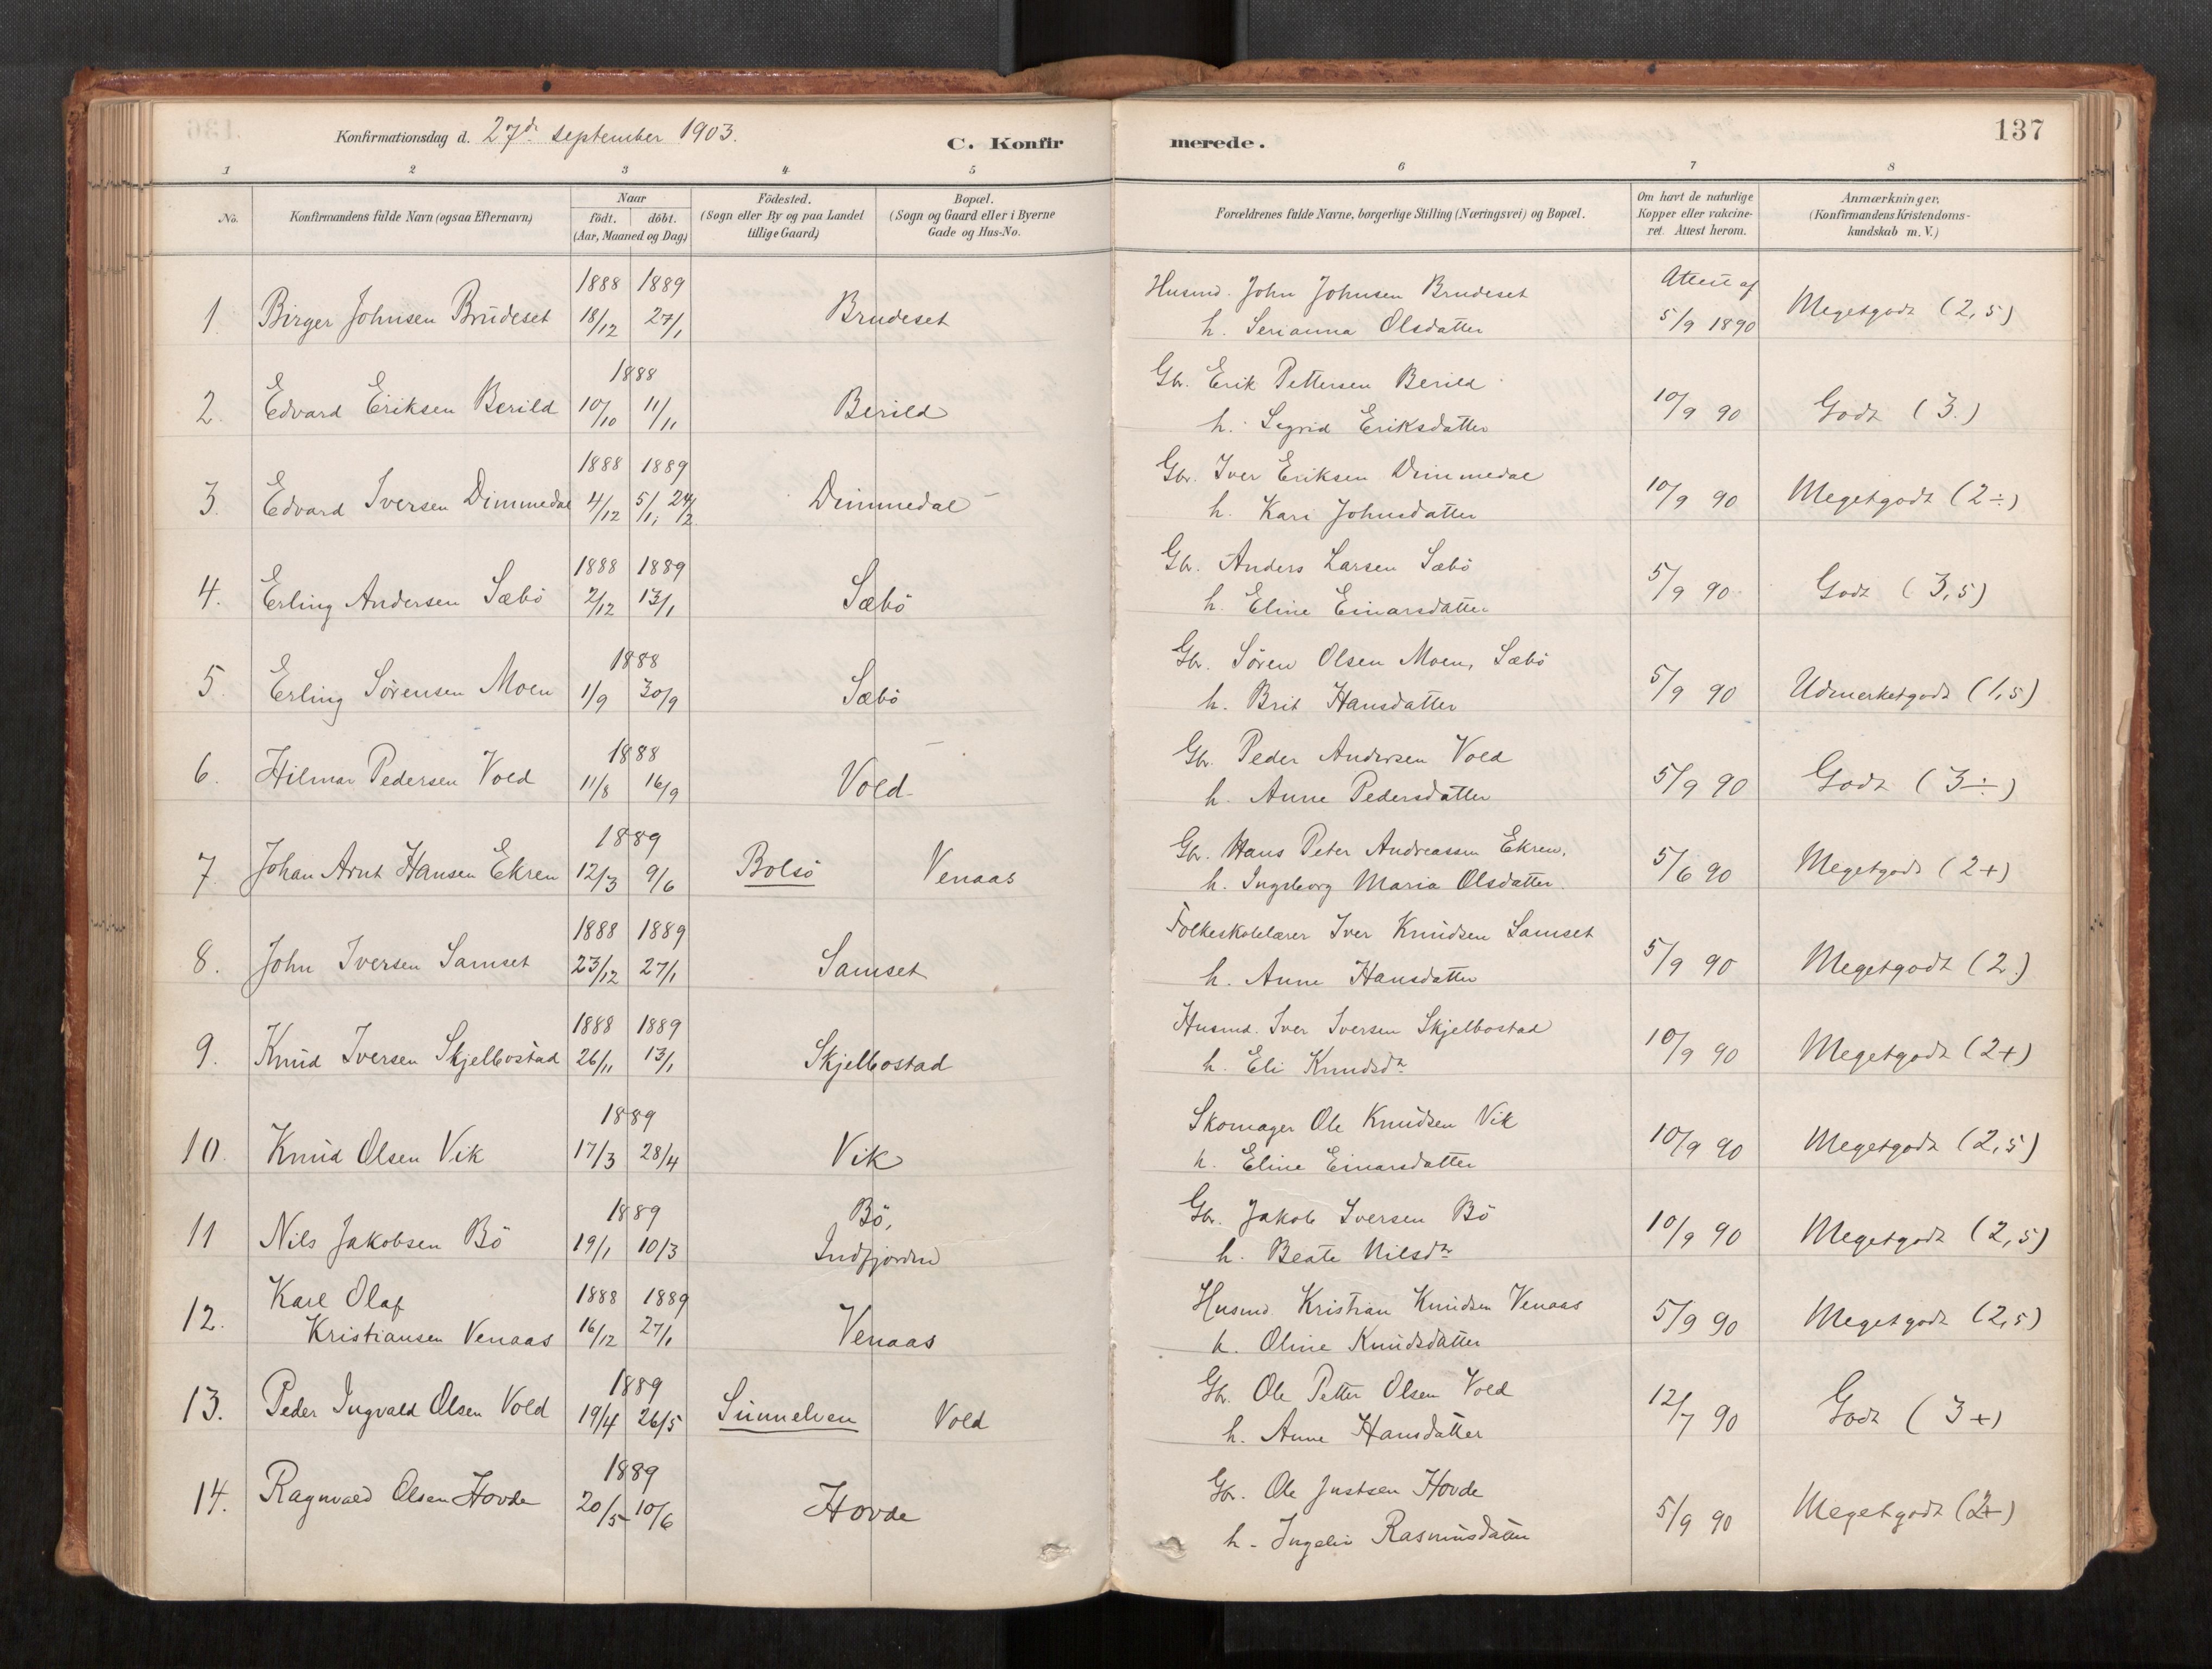 Konfirmationsdag d. 27de september 1903.
C. Konfirmerede.
137
1 2 3 4 5 6 7 8
No. Konfirmandens fulde Navn (ogsaa Efternavn) Naar födt. döbt. (Aar, Maaned og Dag) Födested. (Sogn eller By og paa Landet tillige Gaard) Bopæl. (Sogn og Gaard eller i Byerne Gade og Hus-No. Forældrenes fulde Navne, borgerlige Stilling (Næringsvei) og Bopæl. Om havt de naturlige Kopper eller vakcineret. Attest herom. Anmærkninger, (Konfirmandens Kristendomskundskab m. V.)
1888 1889 Husmd. John Johnsen Brudeset Attest af
1. Birger Johnsen Brudeset 18/12 27/1 Brudeset h. Serianna Olsdatter 5/9 1890 Megetgodt (2,5)
1888 Gbr. Erik Pettersen Berild
2. Edvard Eriksen Berild 10/10 11/11 Berild h. Sigrid Eriksdatter 10/9 90 Godt (3.)
1888 1889 Gbr. Iver Eriksen Dimmedal
3. Edvard Iversen Dimmedal 4/12 5/1; 24/2 Dimmedal h. Kari Johnsdatter 10/9 90 Megetgodt (2÷)
1888 1889 Gbr. Anders Larsen Sæbö
4. Erling Andersen Sæbö 2/12 13/1 Sæbö h. Eline Einarsdatter 5/9 90 Godt (3,5)
1888 Gbr. Sören Olsen Moen, Sæbö
5. Erling Sörensen Moen 1/9 30/9 Sæbö h. Brit Hansdatter 5/9 90 Udmerketgodt (1,5)
1888 Gbr. Peder Andersen Vold
6. Hilmar Pedersen Vold 11/8 16/9 Vold h. Anne Pedersdatter 5/9 90 Godt (3÷)
1889 Gbr. Hans Peter Andreassen Ekren,
7. Johan Arnt Hansen Ekren 12/3 9/6 Bolsö Venaas h. Ingeborg Maria Olsdatter. 5/6 90 Megetgodt (2+)
1888 1889 Folkeskolelærer Iver Knudsen Samset
8. John Iversen Samset 23/12 27/1 Samset h. Anne Hansdatter 5/9 90 Megetgodt (2.)
1888 1889 Husmd. Iver Iversen Skjelbostad
9. Knud Iversen Skjelbostad 26/11 13/1 Skjelbostad h. Eli Knudsdr. 10/9 90 Megetgodt (2+)
1889 Skomager Ole Knudsen Vik
10. Knud Olsen Vik 17/3 28/4 Vik h. Eline Einarsdatter 10/9 90 Megetgodt (2,5)
1889 Bö, Gbr. Jakob Iversen Bö
11 Nils Jakobsen Bö 19/1 10/3 Indfjorden h. Beate Nilsdr. 10/9 90 Megetgodt (2,5)
Karl Olaf 1888 1889 Husmd. Kristian Knudsen Venaas
12. Kristiansen Venaas 16/12 27/1 Venaas h. Oline Knudsdatter 5/9 90 Megetgodt (2,5)
1889 Gbr. Ole Petter Olsen Vold
13. Peder Ingvald Olsen Vold 19/4 26/5 Sunnelven Vold h. Anne Hansdatter 12/7 90 Godt (3+)
1889 Gbr. Ole Justsen Hovde
14. Ragnvald Olsen Hovde 20/5 10/6 Hovde h. Ingeliv Rasmusdatter 5/9 90 Megetgodt (2+)